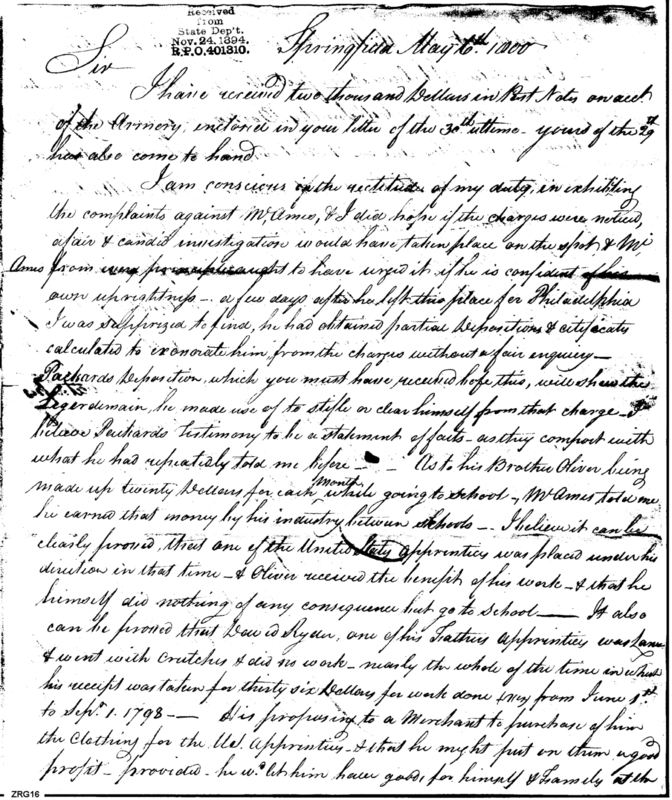 Received
from
State Dep't.
Nov. 24. 1894.
R.P.O. 401310.
Springfield May 6th. 1800
Sir
I have received two thousand Dollars in Post Notes on acct
of the Armory, enclosed in your letter of the 30th ultimo - yours of the 29th
has also come to hand
I am conscious of the rectitude of my duty, in exhibiting
the complaints against Mr Ames, & I did hope if the charges were noticed,
a fair & candid investigation would have taken place on the spot & Mr
Ames from ought to have urged it if he is confident of his
own uprightness - a few days after he left this place for Philadelphia
I was supprized to find, he had obtained partial Depositions & certificates
calculated to exonorate him from the charges without a fair enquiry -
Packards Deposition, which you must have received before this, will shew the
Legerdemain, he made use of to stifle or clear himself from that charge - I
believe Packards Testimony to be a statement of facts - as they comport with
what he had repeatedly told me before - - As to his Brother Oliver being
made up twenty Dollars for each Month while going to school - Mr Ames told me
he earned that money by his industry between Schools - I believe it can be
clearly proved, that one of the United States apprentices was placed under his
direction in that time - & Oliver received the benefit of his work - & that he
himself did nothing of any consequence but go to School - It also
can be proved that David Ryder, one of his Fathers apprentices was Lame
& went with crutches & did no work - nearly the whole of the time in which
his receipt was taken for thirty six Dollars for work done from June 1st
to Sepr. 1. 1798 - His proposing to a Merchant to purchase of him
the Clothing for the U.S. Apprentices - & that he might put on them a good
profit - provided - he wd let him have goods for himself & Family at the
ZRG16